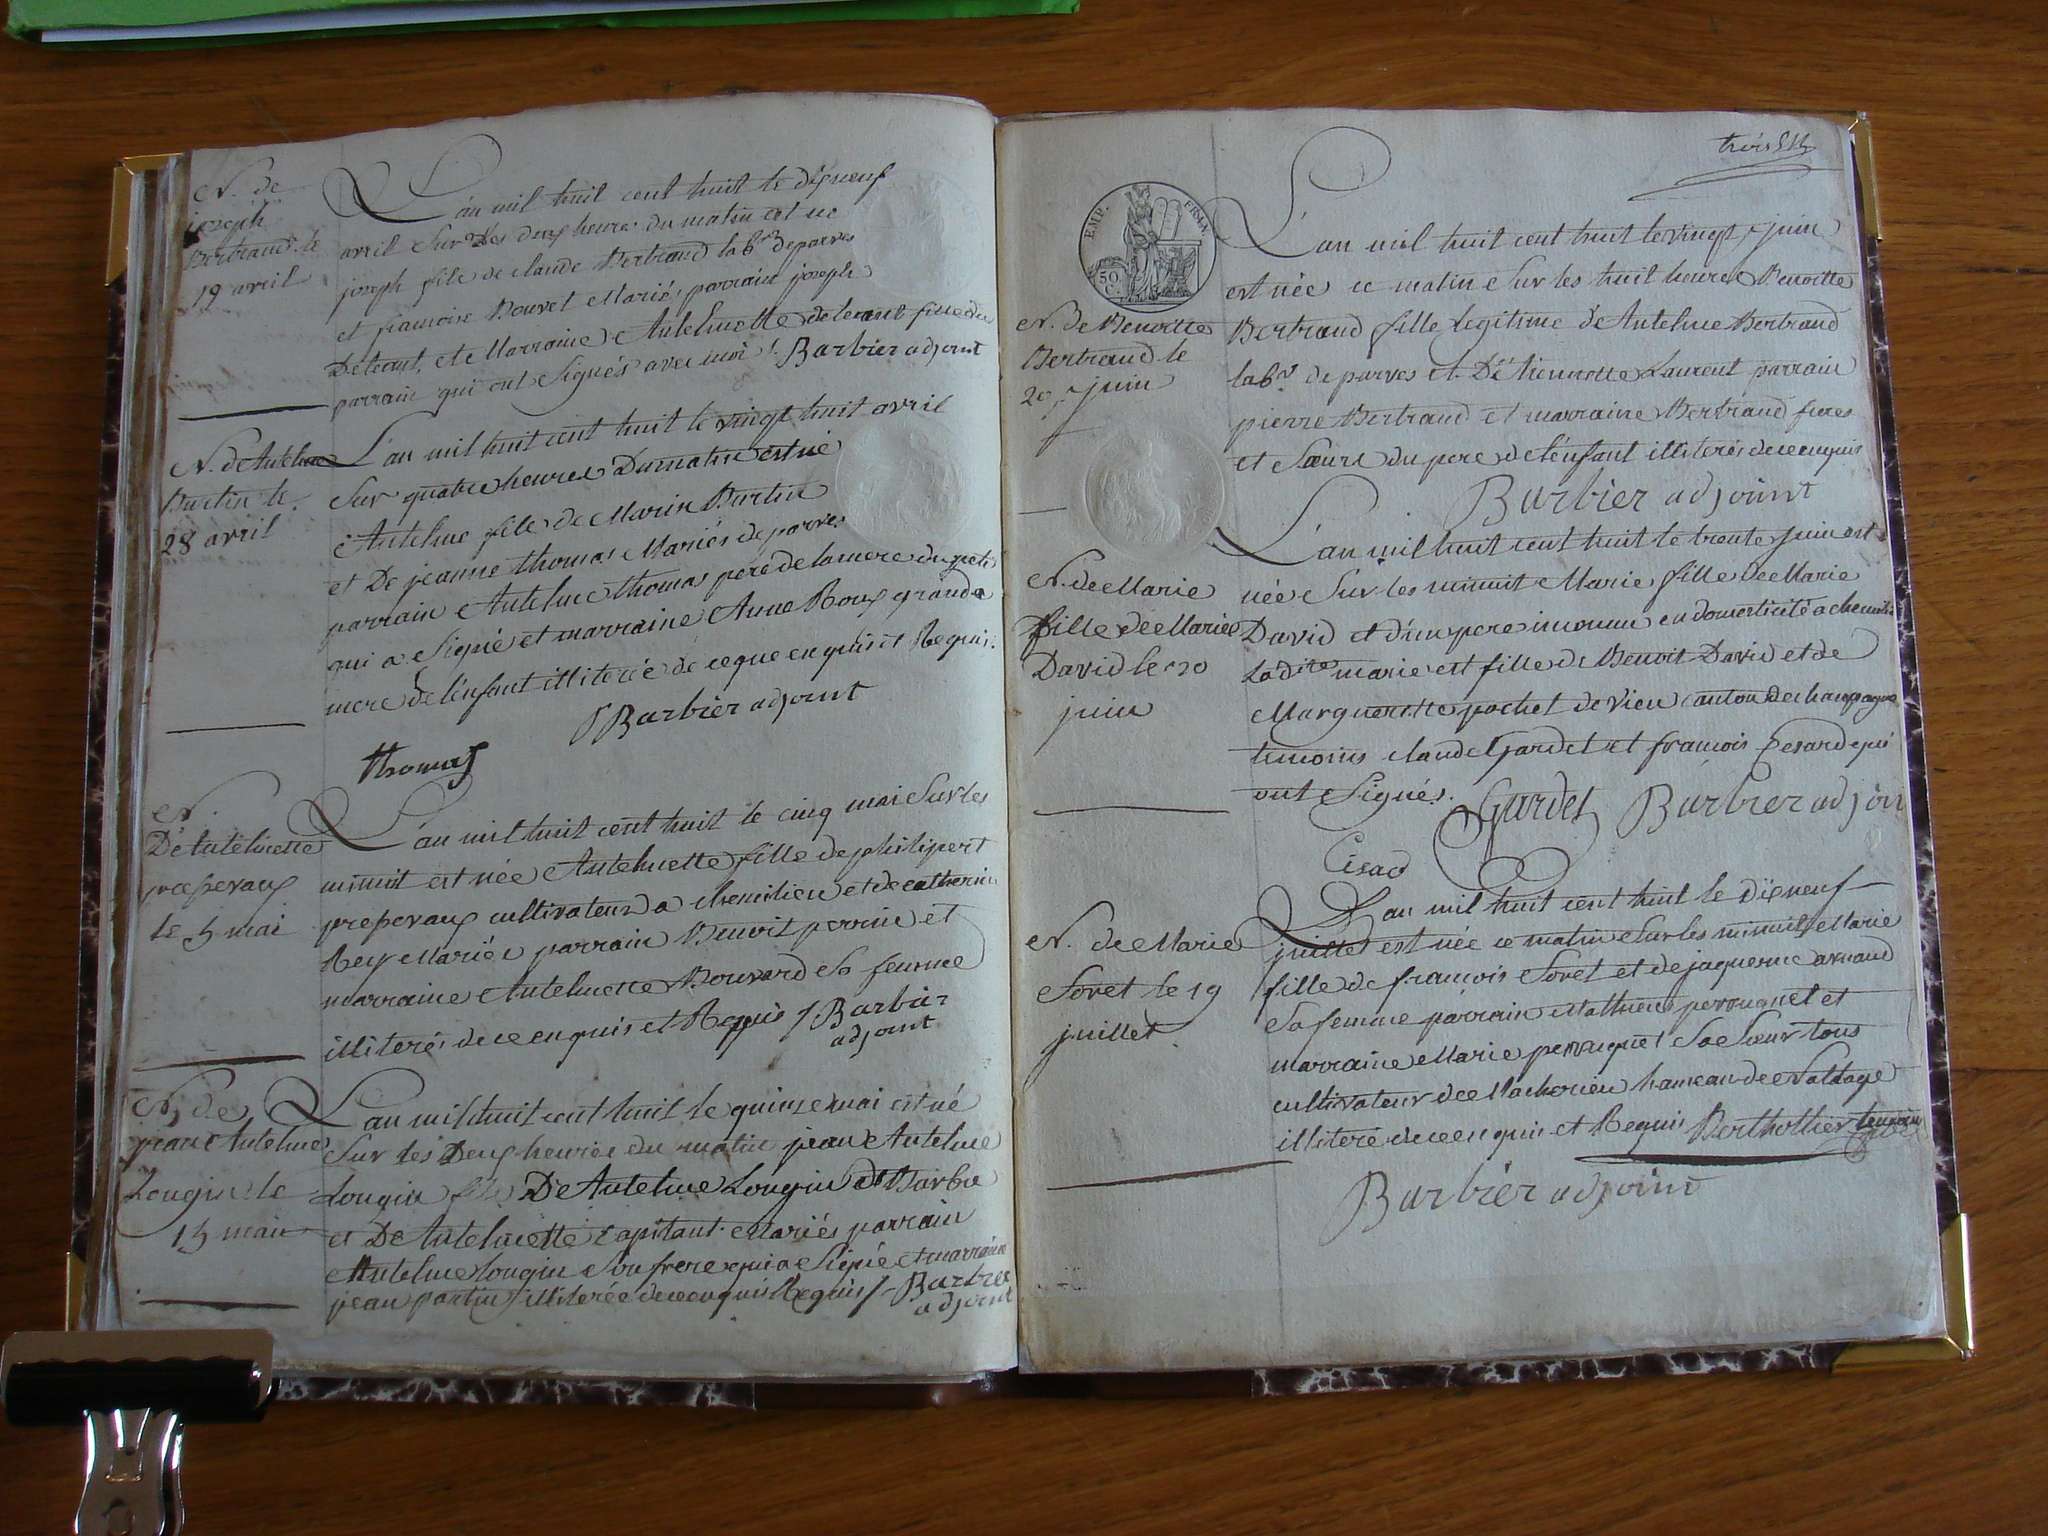 N. de
joseph
Bertrand le
19 avril
L'an mil huit cent huit le dixneuf
avril sur les deux heures du matin est né
joseph fils de claude Bertrand lab.r de parves
et francoise Bouvet Mariés, parrain joseph
Detcant, et Marraine Antelmette detcant fille du
parrain qui ont signés avec moi Barbier adjoint
N. de Antelme
Burtin le
28 avril
L'an mil huit cent huit le vingt huit avril
sur quatre heures du matin est né
Antelme fils de Marin Burtin
et De jeanne thomas Mariés de parves
parrain Antelme thomas pere de la mere du petit
qui a signé et marraine Anne Roux grande
mere de l'enfant illiterée de ce que enquis et Requis.
Barbier adjoint
thomas
N.
D'Antelmette
prepevaux
le 5 mai
L'an mil huit cent huit le cinq mai sur les
minuit est née Antelmette fille de philipert
prepevaux cultivateur a chemilieu et de catherine
Rey Mariés parrain Benoit perrin et
marraine Antelmette Bouvard sa femme
illiterés de ce enquis et Requis / Barbier
adjoint
N. de
jean Antelme
Longin le
15 mai
L'an mil huit cent huit le quinze mai est né
sur les Deux heures du matin jean Antelme
Longin fils De Antelme Longin dt Barbe
et De Antelmette Capitant Mariés parrain
Antelme longin son frere qui a signé et marraine
jean partin illiterée de ce enquis Requis / Barbier
adjoint
EMP. FRAN.
50
C.
N. de Benoitte
Bertrand le
20 juin
L'an mil huit cent huit le vingt juin
est née ce matin sur les huit heures Benoitte
Bertrand fille legitime d'Antelme Bertrand
lab.r de parves et D'Etiennette Laurent parrain
pierre Bertrand et marraine Bertrand freres
et sœurs du pere de l'enfant illiterés de ce enquis
Barbier adjoint
N. de Marie
fille de Marie
David le 30
juin
L'an mil huit cent huit le trente juin est
née sur les minuit Marie fille de Marie
David et d'un pere inconnu en domesticité a chemilieu
La dite marie est fille de Benoit David et de
Margueritte pochet de vieu canton de champagne
temoins claude Gardet et francois Cesard qui
ont signés. Gardet Barbier adjoin
Cisad
N. de Marie
Soret le 19
juillet
L'an mil huit cent huit le dixneuf
juillet est née ce matin sur les minuit Marie
fille de francois Soret et de jaquemine arnaud
sa femme parrain Mathieu perouquet et
marraine Marie perruquet sa sœur tous
cultivateur de Macherieu hameau de
illiteré de ce enquis et Requis Berthollier temoin
Barbier adjoint